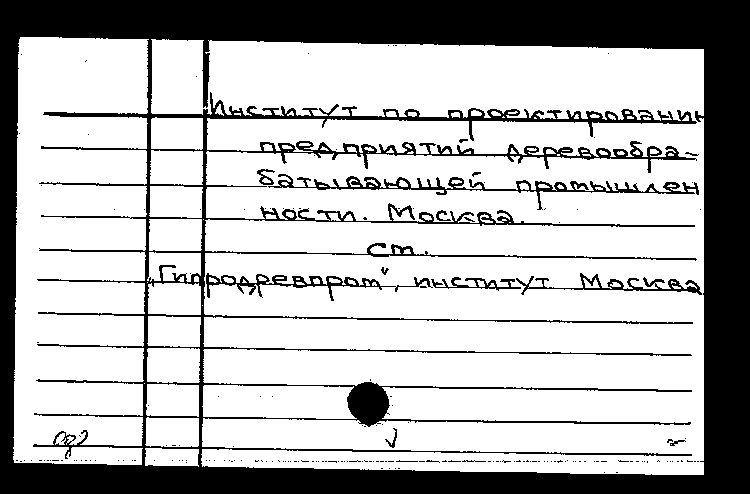 Институт по проектировани
предприятий деревообра-
батывающей промышлен
ности. Москва.
ст.
„Гипродревпром“, институт Москва